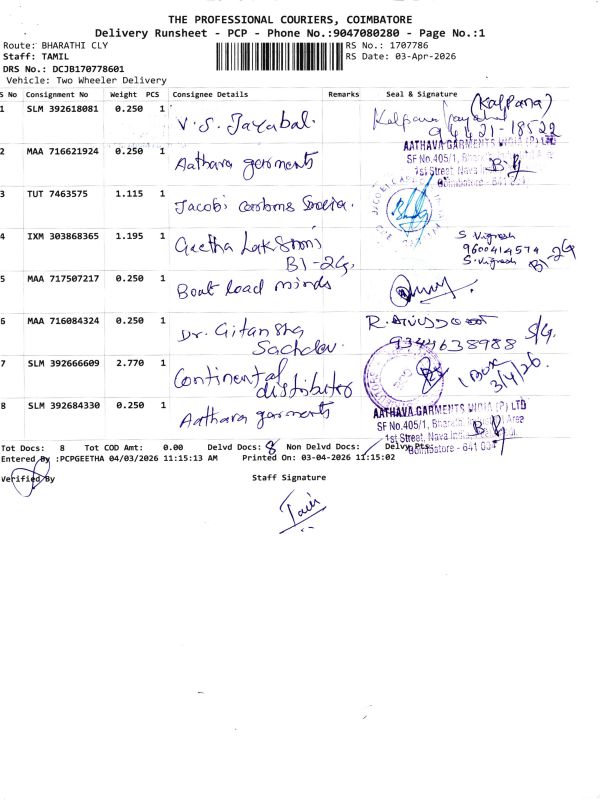 THE PROFESSIONAL COURIERS, COIMBATORE
Delivery Runsheet - PCP - Phone No.:9047080280 - Page No.:1
Route: BHARATHI CLY
RS No.: 1707786
Staff: TAMIL
RS Date: 03-Apr-2026
DRS No.: DCJB170778601
Vehicle: Two Wheeler Delivery
S No Consignment No Weight PCS Consignee Details Remarks Seal & Signature
1 SLM 392618081 0.250 1 V.S. Jayabal. Kalpana (Kalpana)
94421-18522
2 MAA 716621924 0.250 1 Aathava garments
AATHAVA GARMENTS INDIA (P) LTD
SF No.405/1,
1st Street, Nava India
Coimbatore - 641
3 TUT 7463575 1.115 1 Jacobi carbons
4 IXM 303868365 1.195 1 Geetha Lakshmi
B1-2G,
S Vignesh
9600414574
S.Vignesh B1-2G
5 MAA 717507217 0.250 1 Boat load minds
6 MAA 716084324 0.250 1 Dr. Gitansha
Sachdev.
R.
9344638988 S/G.
7 SLM 392666609 2.770 1 Continental
distributor
1 Box
3/4/26.
8 SLM 392684330 0.250 1 Aathava garments
AATHAVA GARMENTS INDIA (P) LTD
SF No.405/1, Area
1st Street, Nava India
Coimbatore - 641 004
Tot Docs: 8 Tot COD Amt: 0.00 Delvd Docs: 8 Non Delvd Docs: / Delvy Pts:
Entered By :PCPGEETHA 04/03/2026 11:15:13 AM Printed On: 03-04-2026 11:15:02
Verified By
Staff Signature